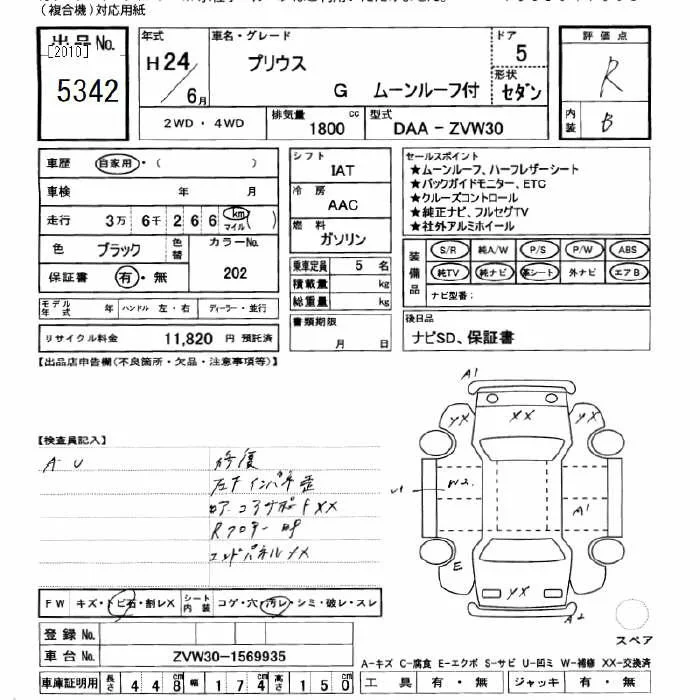 (複合機)対応用紙
出品No.
[2010]
5342
年式
H24/6月
車名・グレード
プリウス
G ムーンルーフ付
ドア
5
形状
セダン
2WD・4WD
排気量
1800 cc
型式
DAA-ZVW30
評価点
R
内装
B
車歴 自家用・( )
車検 年 月
走行 3万 6千 2 6 6 km マイル ( )
色 ブラック 色替
カラーNo.
202
保証書 有・無
モデル年式 年 ハンドル 左・右 ディーラー・並行
リサイクル料金 11,820 円 預託済
シフト
IAT
冷房
AAC
燃料
ガソリン
乗車定員 5 名
積載量 kg
総重量 kg
書類期限
月 日
セールスポイント
★ムーンルーフ、ハーフレザーシート
★バックガイドモニター、ETC
★クルーズコントロール
★純正ナビ、フルセグTV
★社外アルミホイール
装備品
S/R 純A/W P/S P/W ABS
純TV 純ナビ 革シート 外ナビ エアB
ナビ型番:
後日品
ナビSD、保証書
【出品店申告欄(不良箇所・欠品・注意事項等)】
【検査員記入】
A-U
修復
コアサポートXX
エンドパネルXX
A1
XX XX XX
W2
A1
E
XX
A2
スペア
FW キズ・トビ石・割レX シート内装 コゲ・穴・汚レ・シミ・破レ・スレ
登録No.
車台No. ZVW30-1569935
車庫証明用 長さ 448cm 幅 174cm 高さ 150cm
A-キズ C-腐食 E-エクボ S-サビ U-凹ミ W-補修 XX-交換済
工具 有・無 ジャッキ 有・無